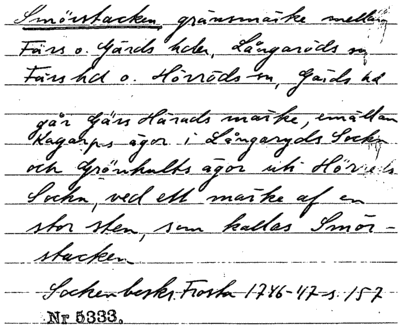 Smörstacken gränsmärke mellan
Färs o. Gärds hder, Långaröds sn
Färs hd o. Hörröds sn, Gärds hd
går Gärs Härads märke, emellan
Kagarps ägor i Långaryds Sockn
och Grönhults ägor uti Hörreds
Sockn, ved ett märke af en
stor sten, som kallas Smör-
stacken
Sockenbeskr. Frosta 1746-47 s. 157
Nr 5333.